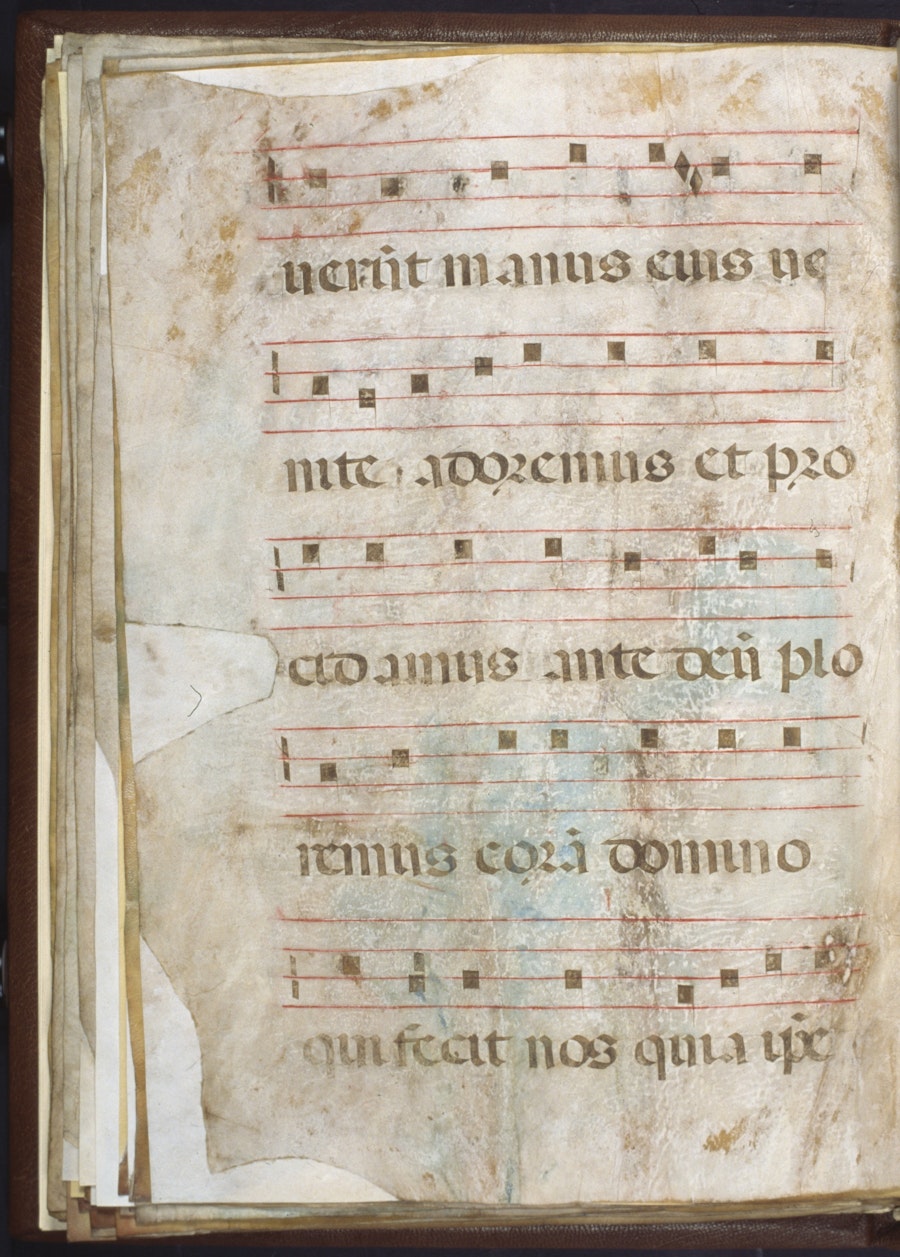 uerūt manus eius ue
nite adoremus et pro
cidamus ante deū plo
remus corā domino
qui fecit nos quia ip̄e